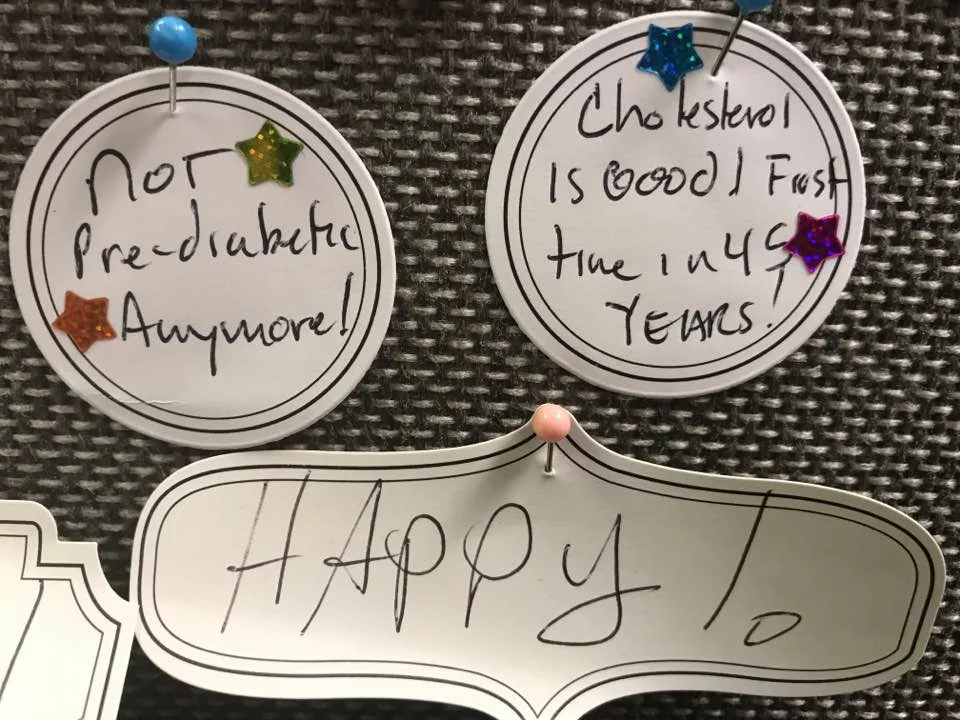 NOT
Pre-diabetic
Anymore!
Cholesterol
Is Goood! First
time in 45
YEARS!
HAPPY!